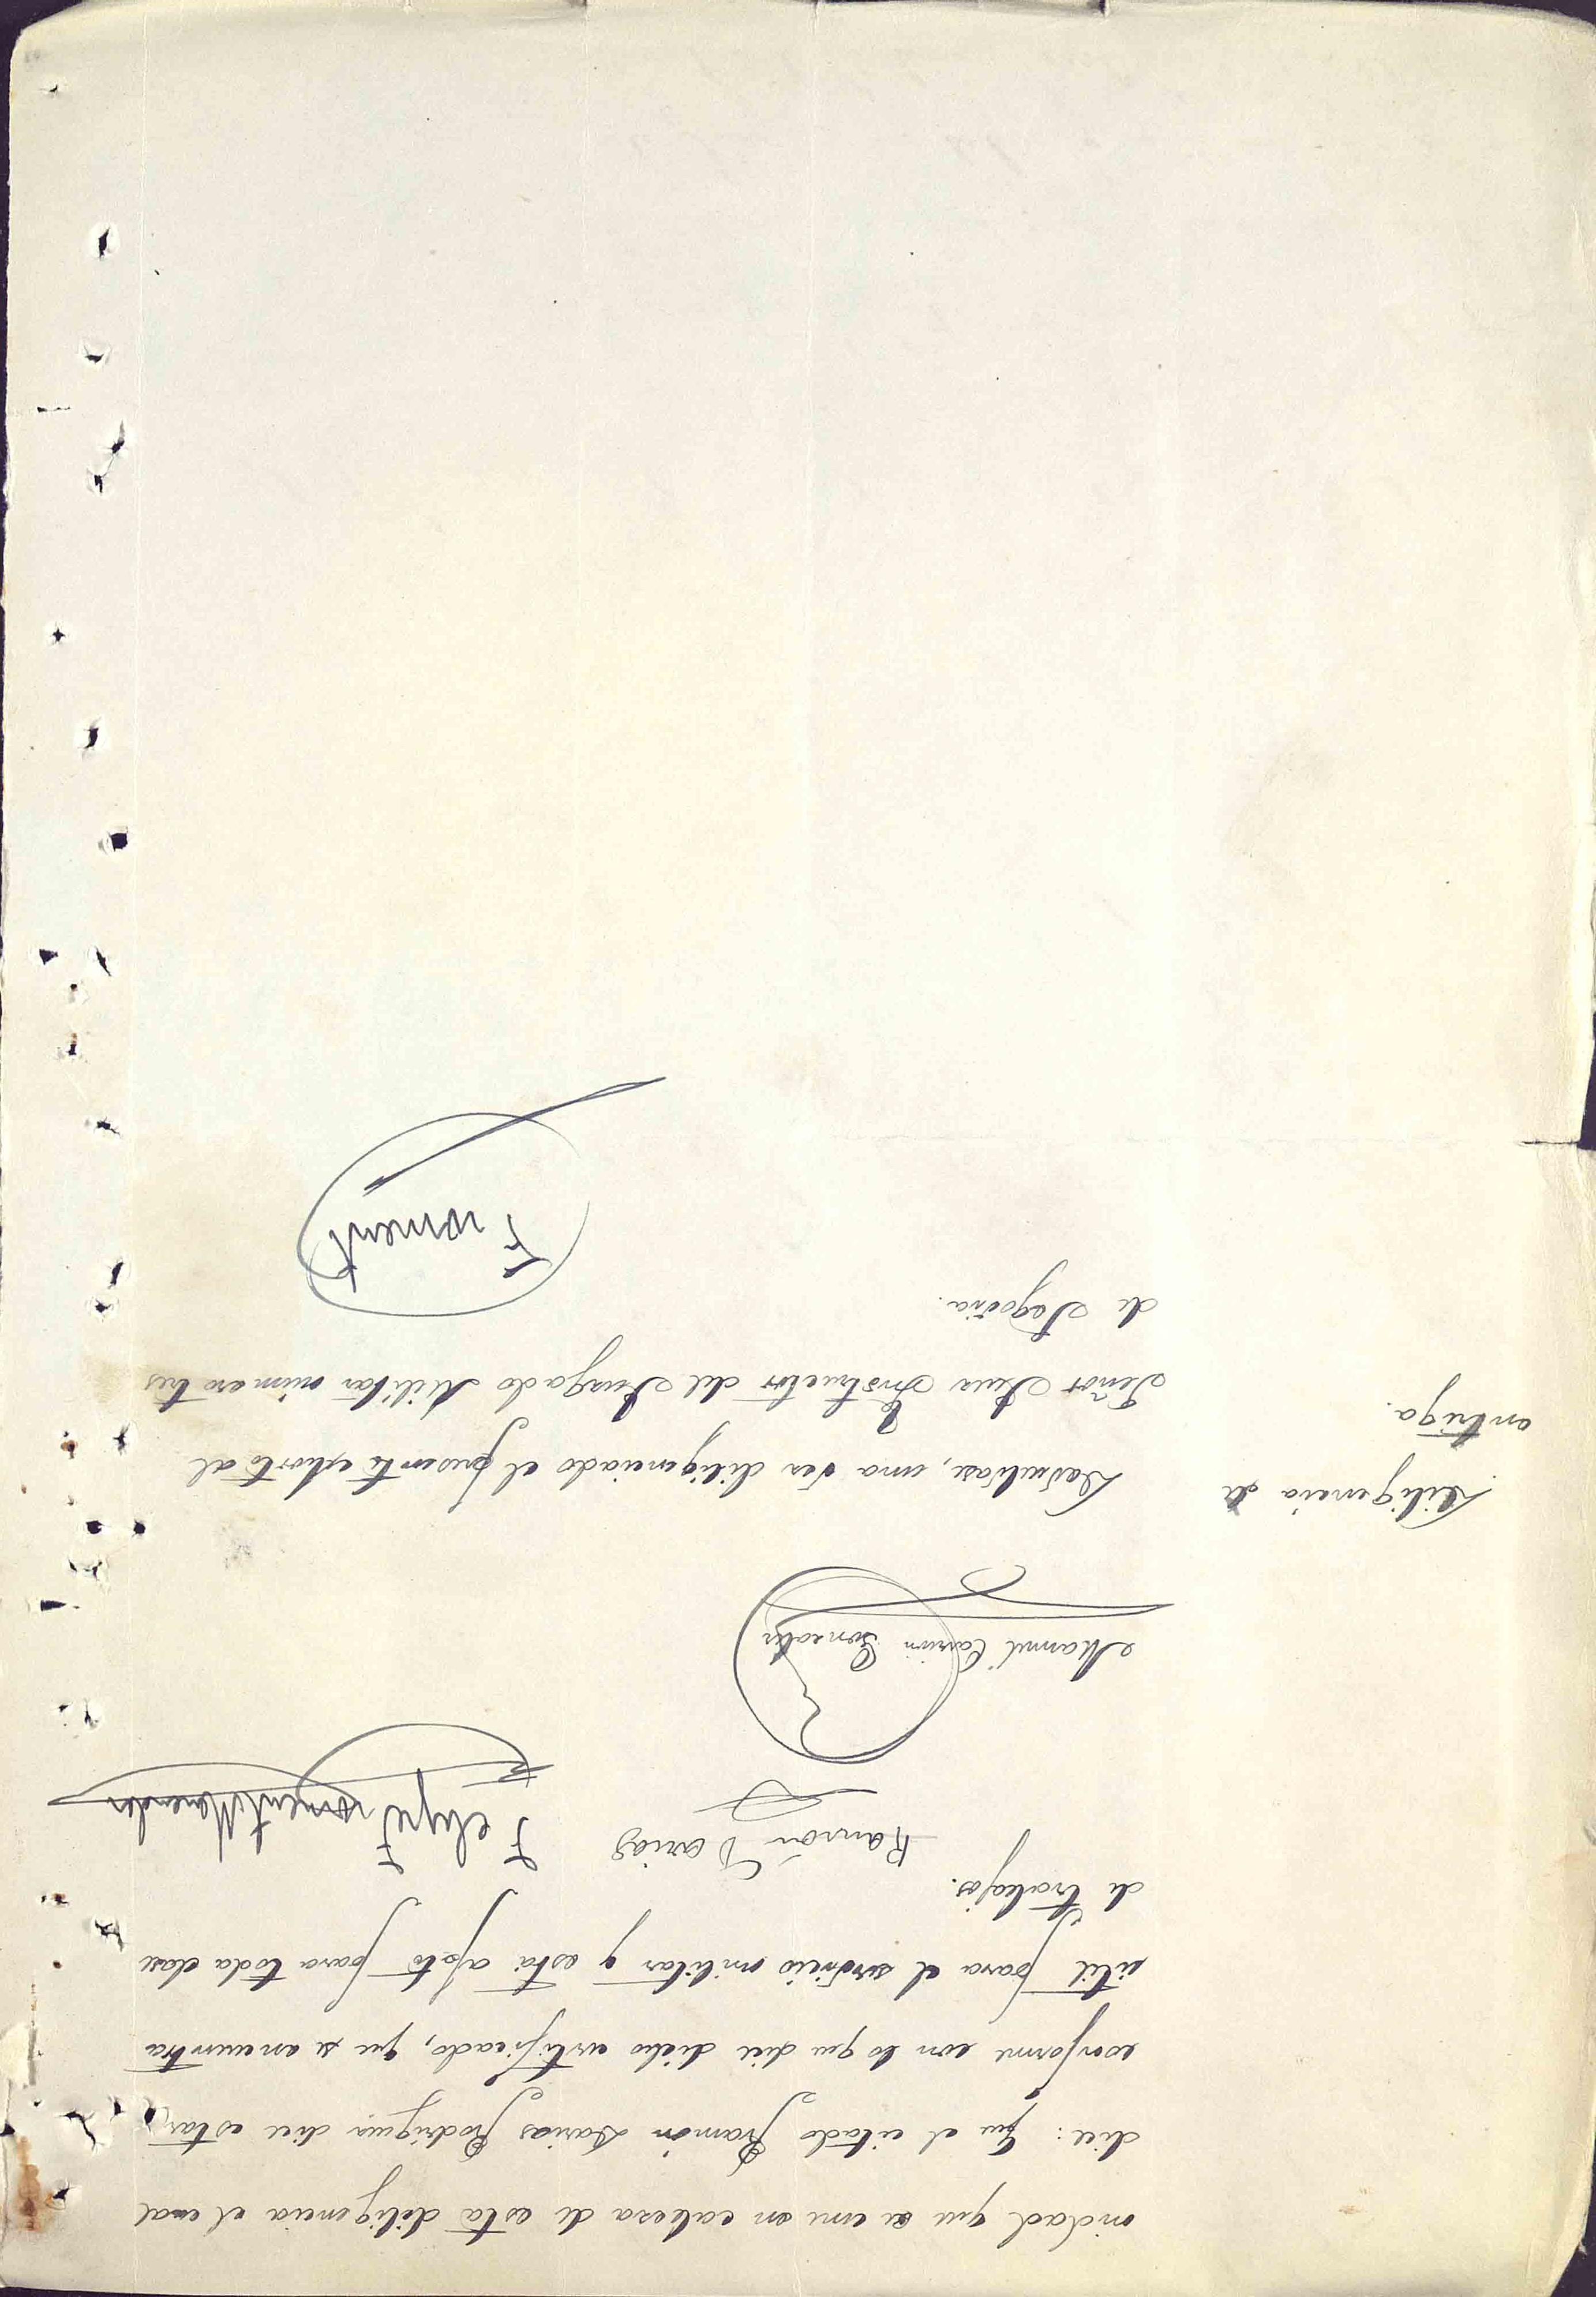 nidad que se une en cabesa de esta diligencia el cual
dice: Que el citado Ramón Darias Rodrigues dice estar
conforme con lo que dice dicho certificado, que se encuentra
útil para el servicio militar y está apto para toda clase
de trabajos.
Ramón Darias Felipe Froment Menendez
Manuel Carrión Gonzalez
Diligencia de
entrega.
Devuelvase, una ves diligenciado el presente exhorto al
Señor Jues Instructor del Jusgado Militar número tres
de Segovia.
Froment